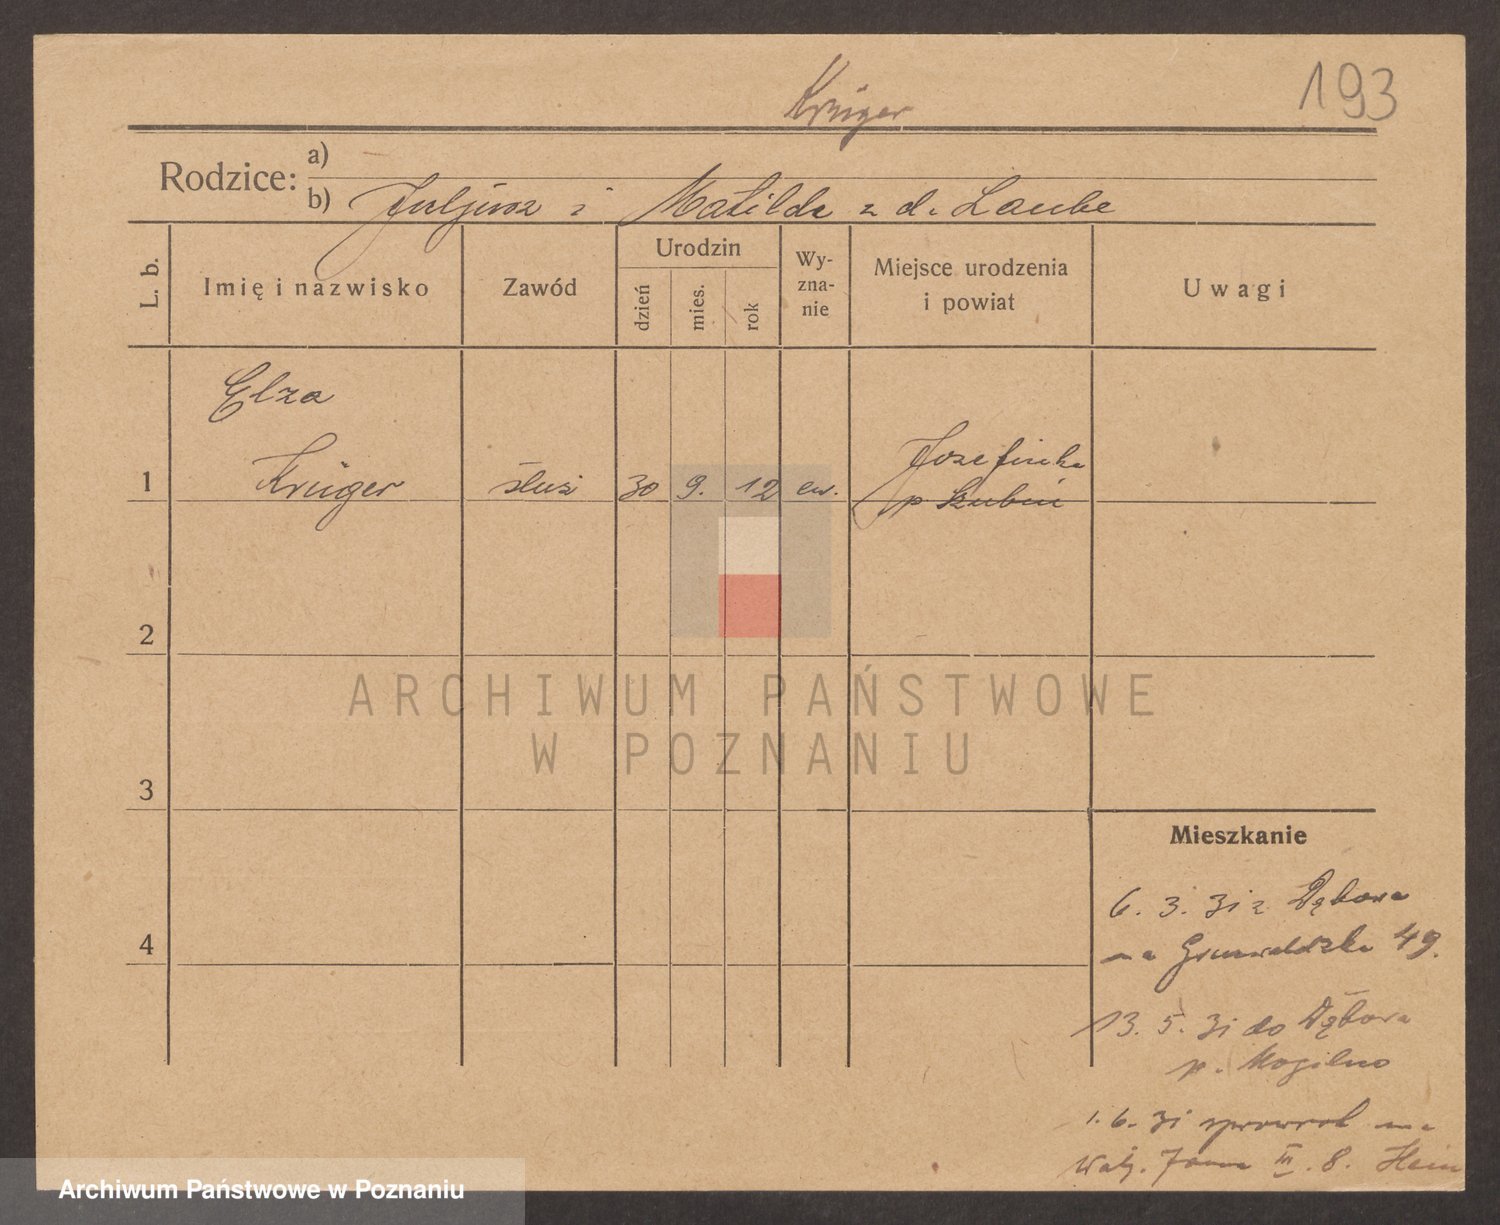 Krüger
193
Rodzice:
a)
b) Juljusz i Matilda z d. Laube
L. b.
Imię i nazwisko
Zawód
Urodzin
dzień
mies.
rok
Wy-
zna-
nie
Miejsce urodzenia
i powiat
Uwagi
Elza
1 Krüger służ 30 9. 12 ew. Józefinka
p Szubin
2
3
4
Mieszkanie
6. 3. 31 z Dąbowa
na Grunwaldzka 49.
13. 5. 31 do Dąbowa
p. Mogilno
1. 6. 31 na
Jana III. 8. Hein
ARCHIWUM PAŃSTWOWE
W POZNANIU
Archiwum Państwowe w Poznaniu